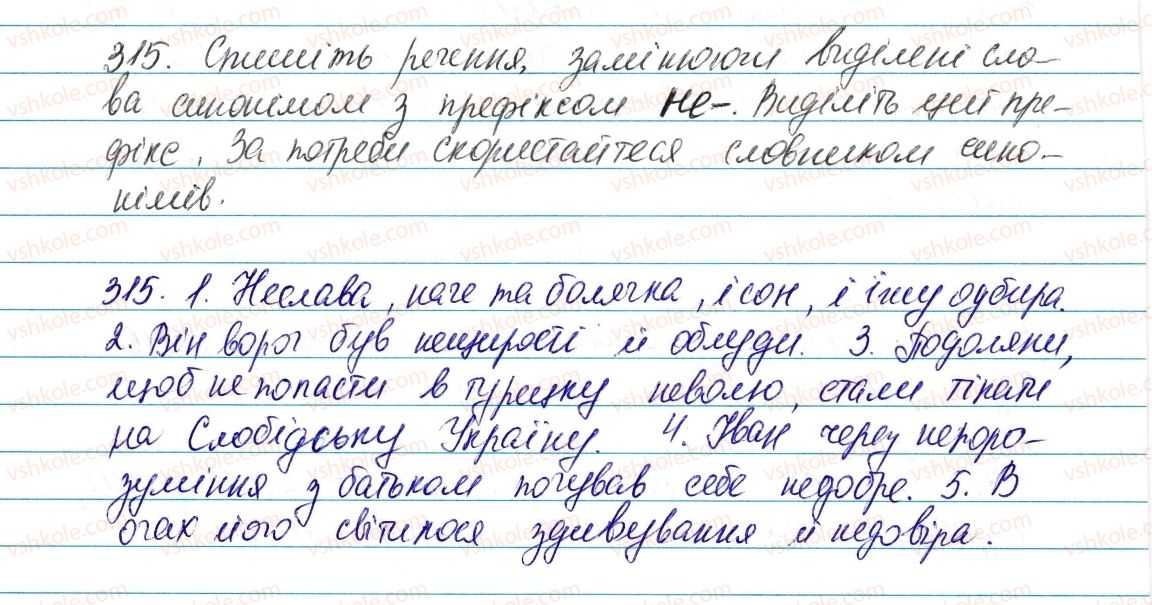 315. Спишіть речення, замінюючи виділені сло-
ва синонімом з префіксом не-. Виділіть цей пре-
фікс. За потреби скористайтеся словником сино-
німів.
315. 1. Неслава, наче та болячка, і сон, і їжу одбира.
2. Він ворог був нещирості й облуди. 3. Подоляни,
щоб не попасти в турецьку неволю, стали тікати
на Слобідську Україну. 4. Іван через непоро-
зуміння з батьком почував себе недобре. 5. В
очах його світилося здивування й недовіра.